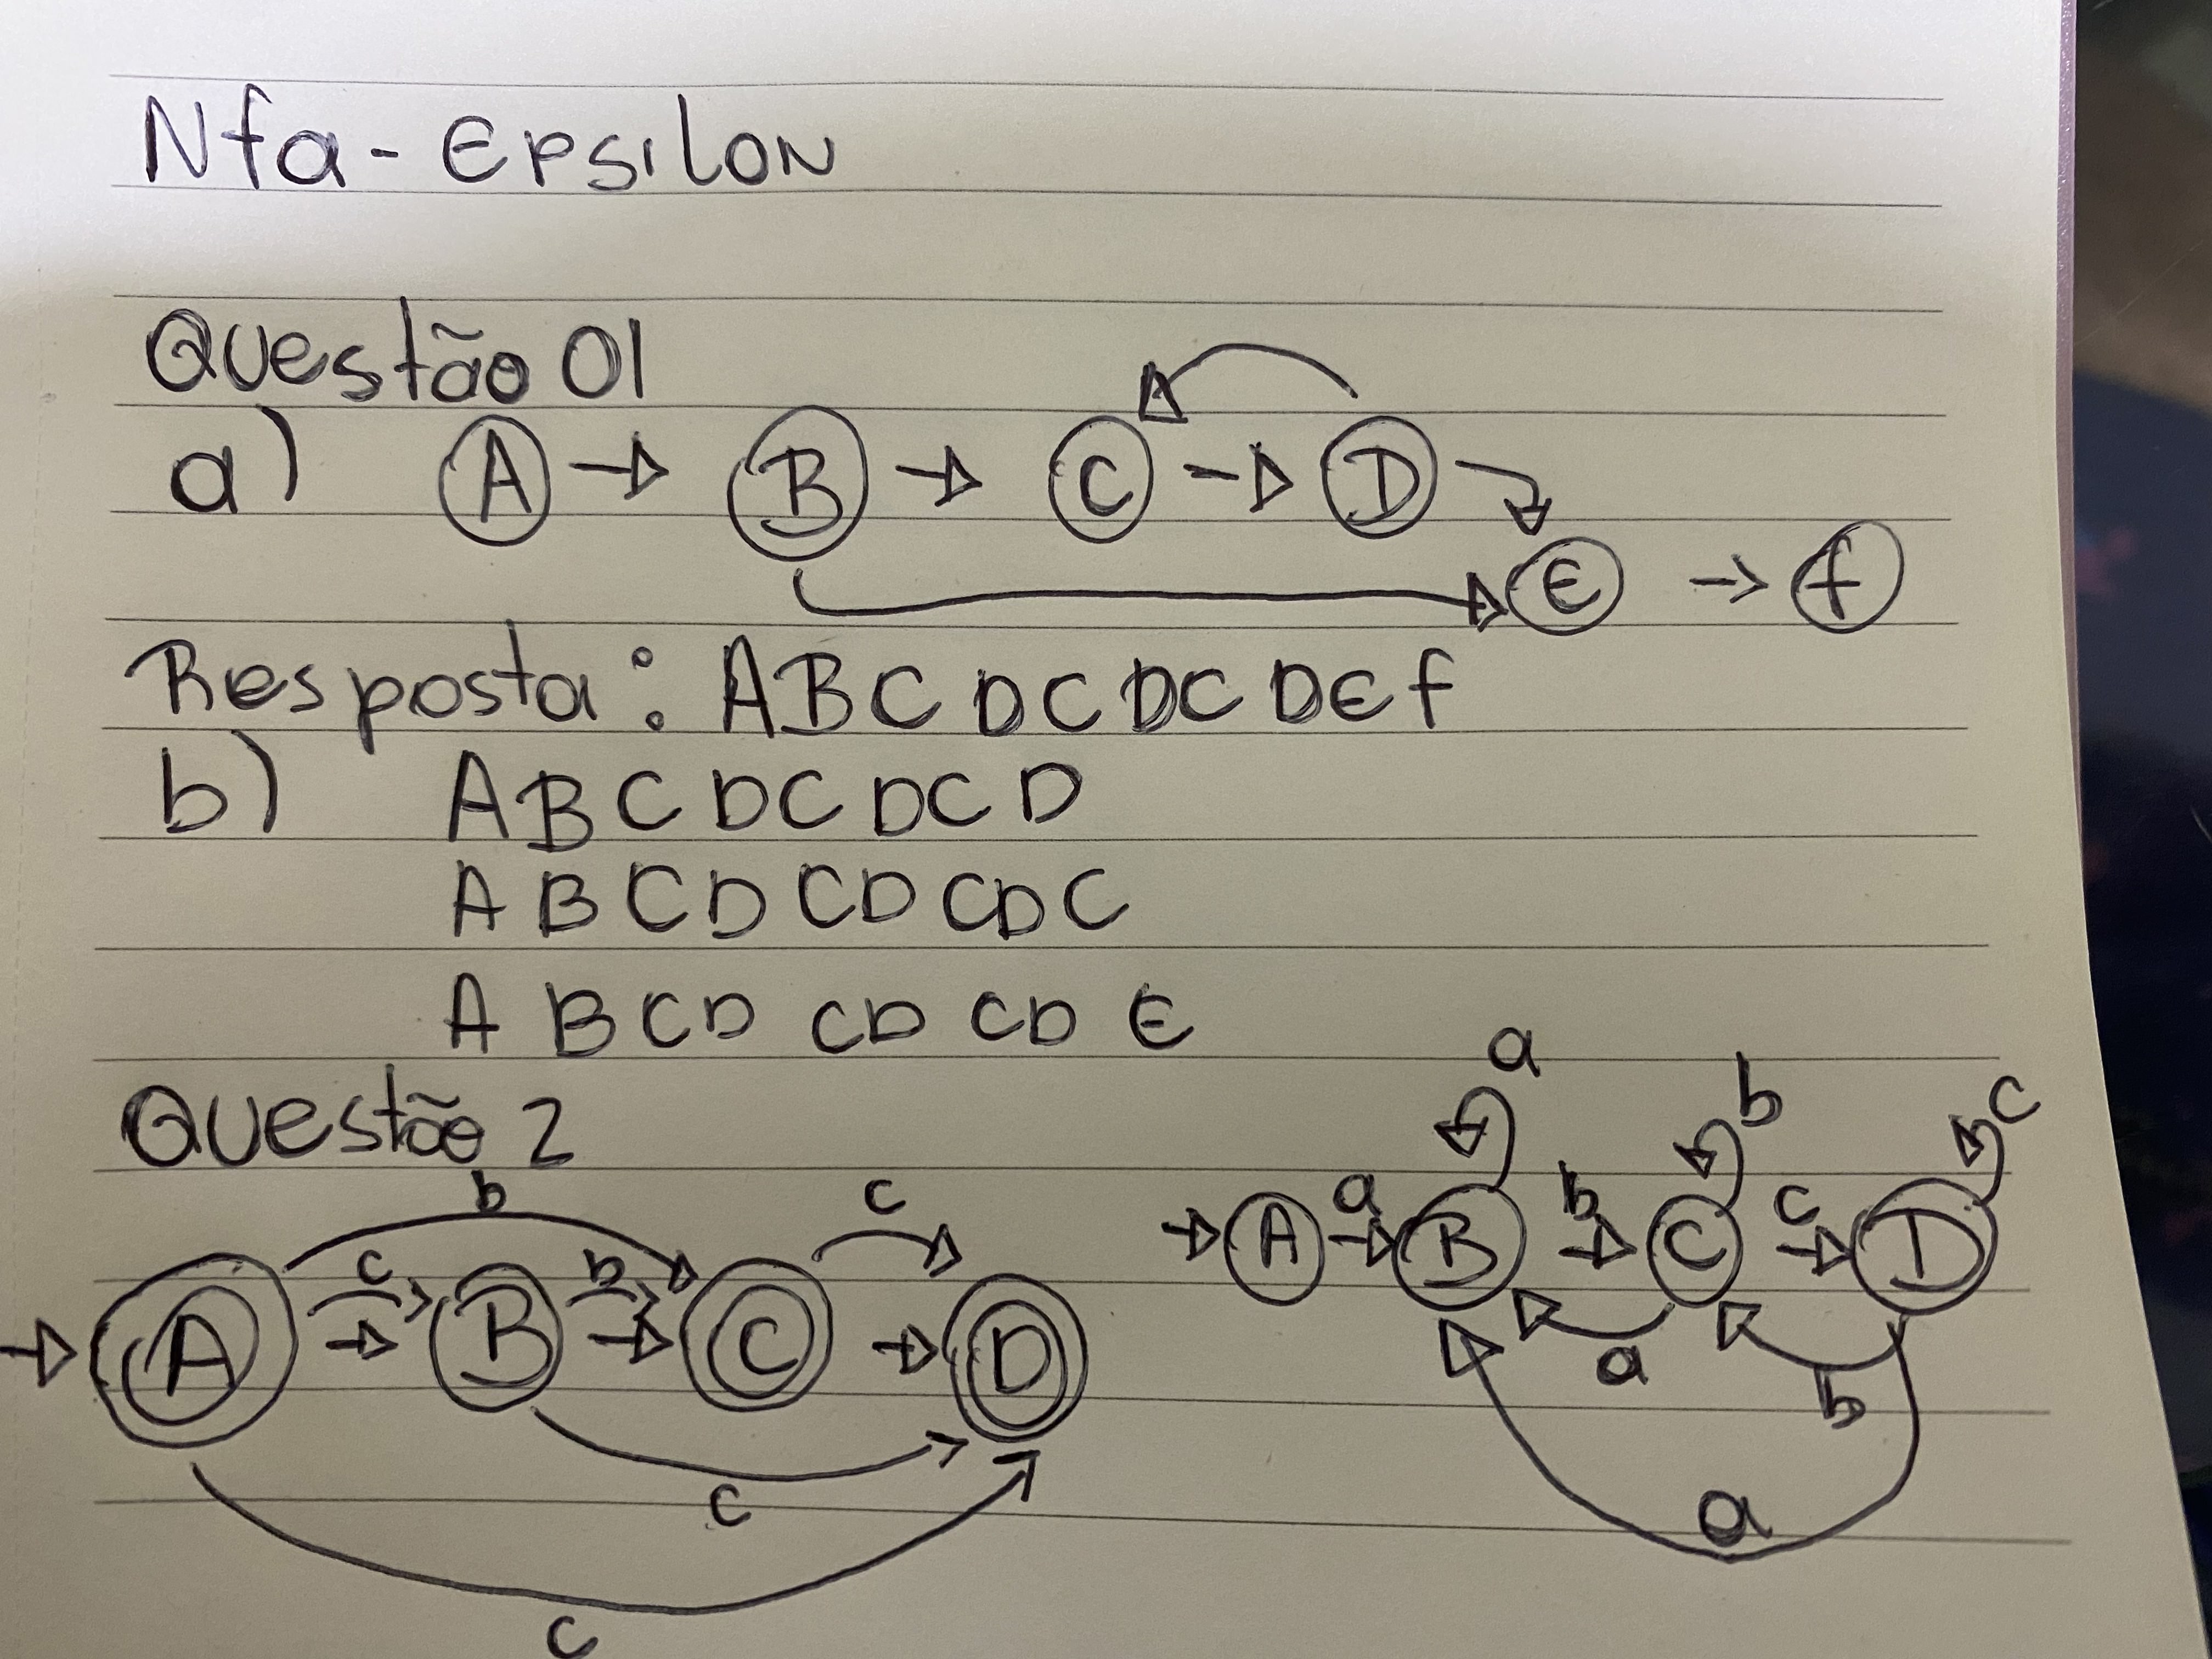 Nfa - EPSILON
Questão 01
a) A B C D
E f
Resposta: ABCDCDCDEf
b) ABCDCDCD
ABCDCDCDC
ABCDCDCDE
Questão 2
a
b
c
b c
c b
a b c
A B C D
A B C D
a
b
c
a
c